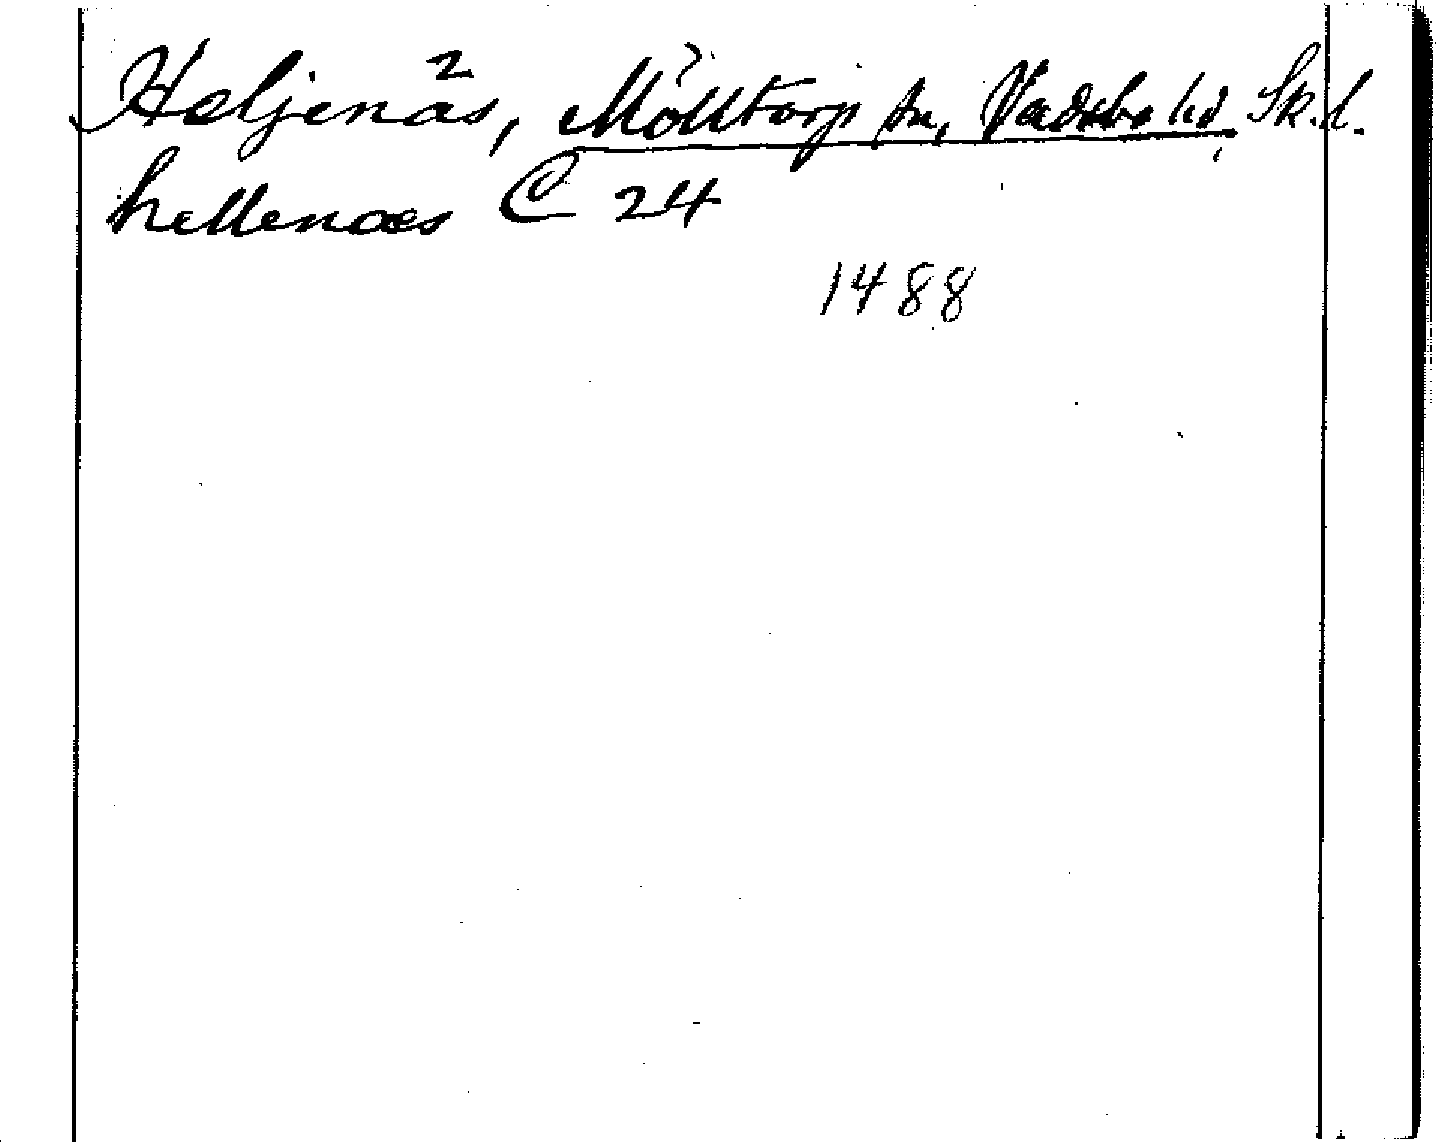 Heljenäs, Mölltorp sn, Vadsbo hd, Sk.l.
hellenæs C 24
1488